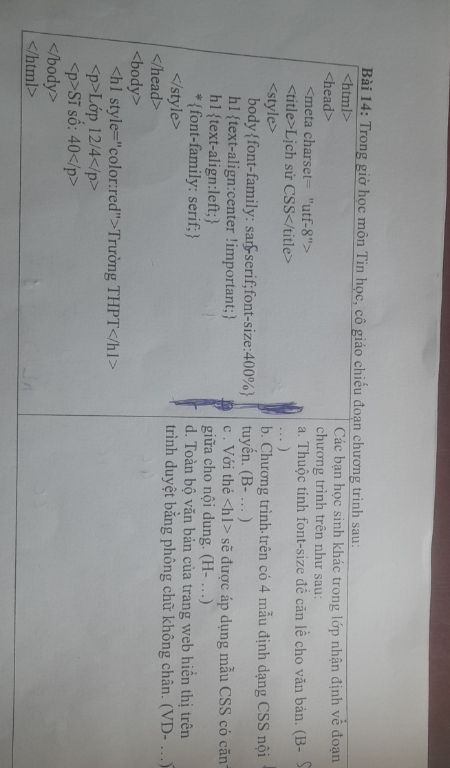 Bài 14: Trong giờ học môn Tin học, cô giáo chiếu đoạn chương trình sau:
<html>
<head>
<meta charset= "utf-8">
<title>Lịch sử CSS</title>
<style>
body{font-family: sans-serif;font-size:400%}
h1{text-align:center !important;}
h1{text-align:left;}
*{font-family: serif;}
</style>
</head>
<body>
<h1 style="color:red">Trường THPT</h1>
<p>Lớp 12/4</p>
<p>Sĩ số: 40</p>
</body>
</html>
Các bạn học sinh khác trong lớp nhận định về đoạn
chương trình trên như sau:
a. Thuộc tính font-size để căn lề cho văn bản. (B-
… )
b. Chương trình trên có 4 mẫu định dạng CSS nội
tuyến. (B- … )
c . Với thẻ <h1> sẽ được áp dụng mẫu CSS có căn
giữa cho nội dung. (H- …)
d. Toàn bộ văn bản của trang web hiển thị trên
trình duyệt bằng phông chữ không chân. (VD- …)